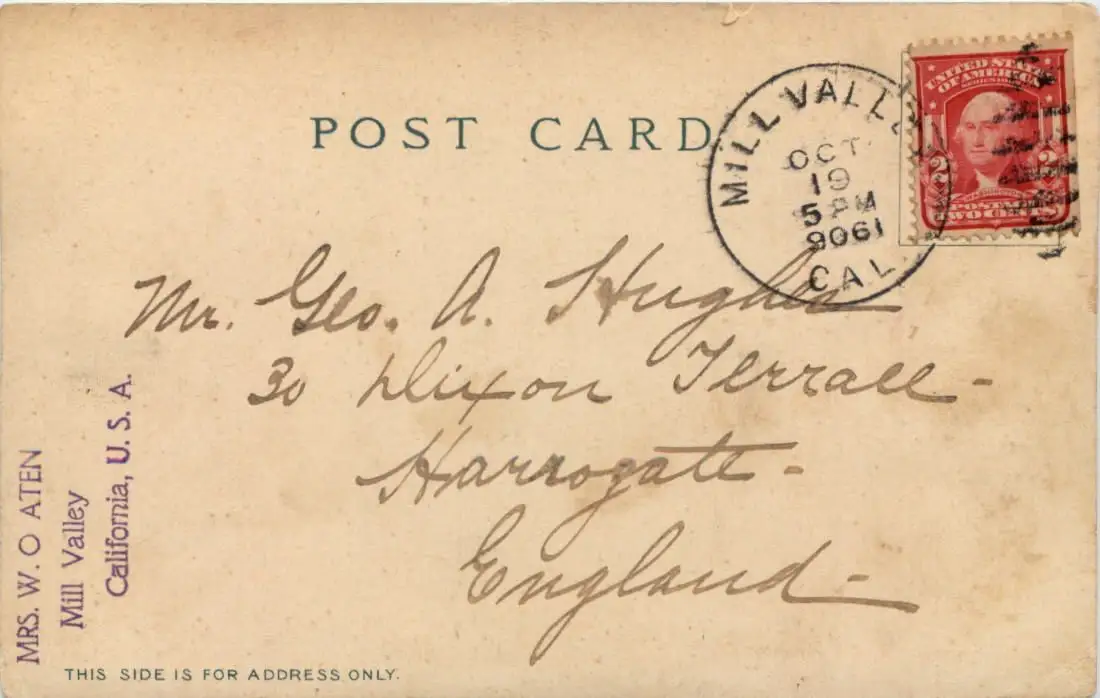 POST CARD
MILL VALLEY
OCT
19
5 PM
9061
CAL.
UNITED STATES
OF AMERICA
2 2
WASHINGTON
POSTAGE
TWO CENTS
Mr. Geo. A. Hughes
30 Dixon Terrace -
Harrogate -
England -
MRS. W. O ATEN
Mill Valley
California, U. S. A.
THIS SIDE IS FOR ADDRESS ONLY.